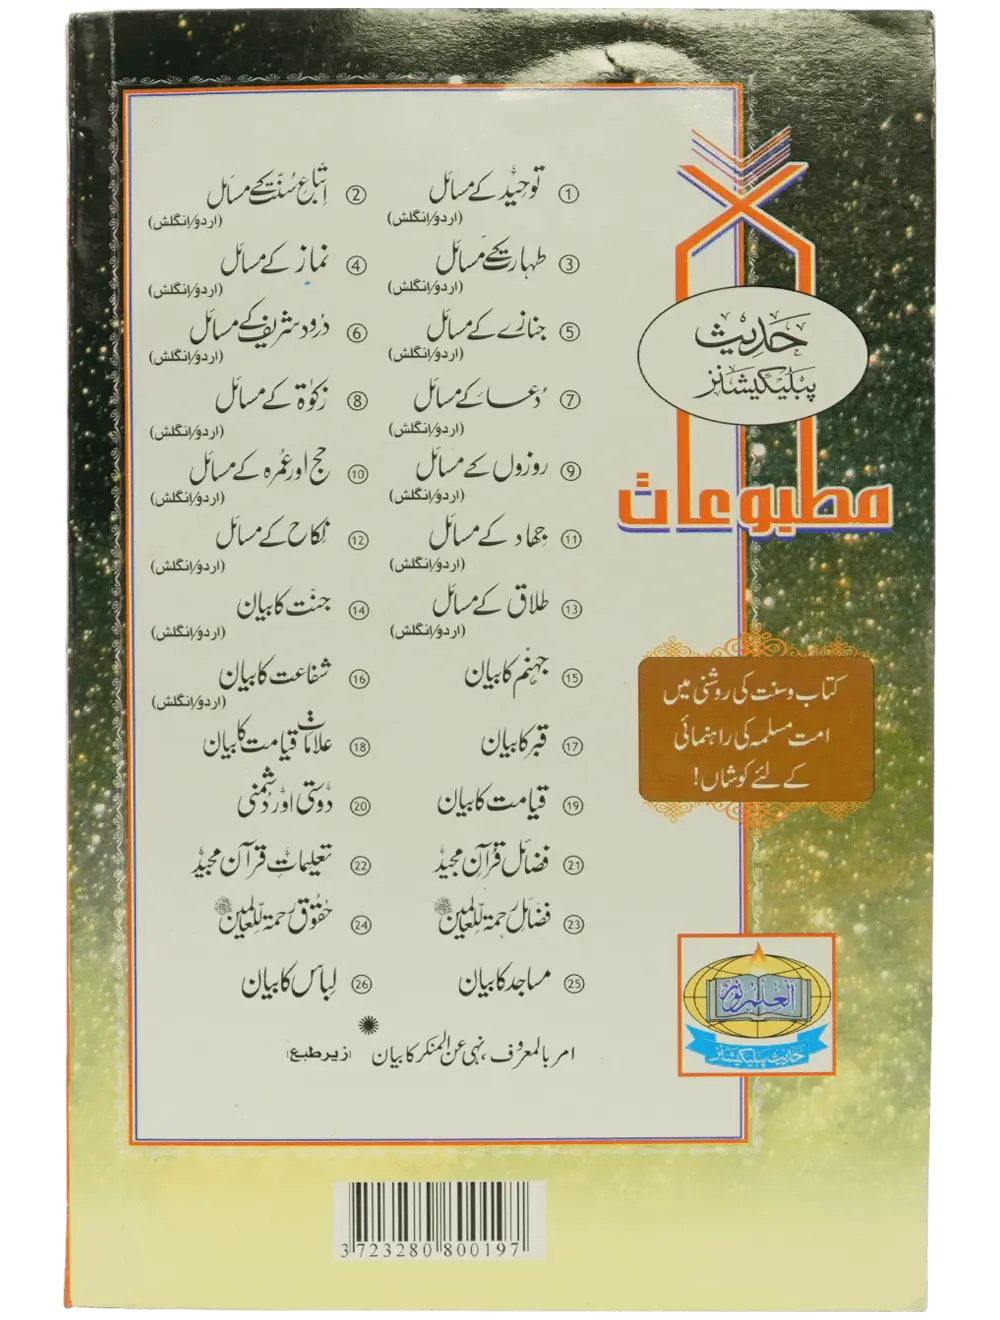 ① توحید کے مسائل
(اردو/انگلش)
② اتباع سنت کے مسائل
(اردو/انگلش)
③ طہارت کے مسائل
(اردو/انگلش)
④ نماز کے مسائل
(اردو/انگلش)
⑤ جنازے کے مسائل
(اردو/انگلش)
⑥ درود شریف کے مسائل
(اردو/انگلش)
⑦ دُعا کے مسائل
(اردو/انگلش)
⑧ زکوٰۃ کے مسائل
(اردو/انگلش)
⑨ روزوں کے مسائل
(اردو/انگلش)
⑩ حج اور عمرہ کے مسائل
(اردو/انگلش)
⑪ جہاد کے مسائل
(اردو/انگلش)
⑫ نکاح کے مسائل
(اردو/انگلش)
⑬ طلاق کے مسائل
(اردو/انگلش)
⑭ جنت کا بیان
(اردو/انگلش)
⑮ جہنم کا بیان
⑯ شفاعت کا بیان
(اردو/انگلش)
⑰ قبر کا بیان
⑱ علامات قیامت کا بیان
⑲ قیامت کا بیان
⑳ دوستی اور دشمنی
㉑ فضائل قرآن مجید
㉒ تعلیمات قرآن مجید
㉓ فضائل رحمۃ للعالمین ﷺ
㉔ حقوق رحمۃ للعالمین ﷺ
㉕ مساجد کا بیان
㉖ لباس کا بیان
امر بالمعروف، نہی عن المنکر کا بیان (زیر طبع)
حدیث
پبلیکیشنز
مطبوعات
کتاب و سنت کی روشنی میں
امت مسلمہ کی راہنمائی
کے لئے کوشاں!
العلم نور
حدیث پبلیکیشنز
3 723280 800197